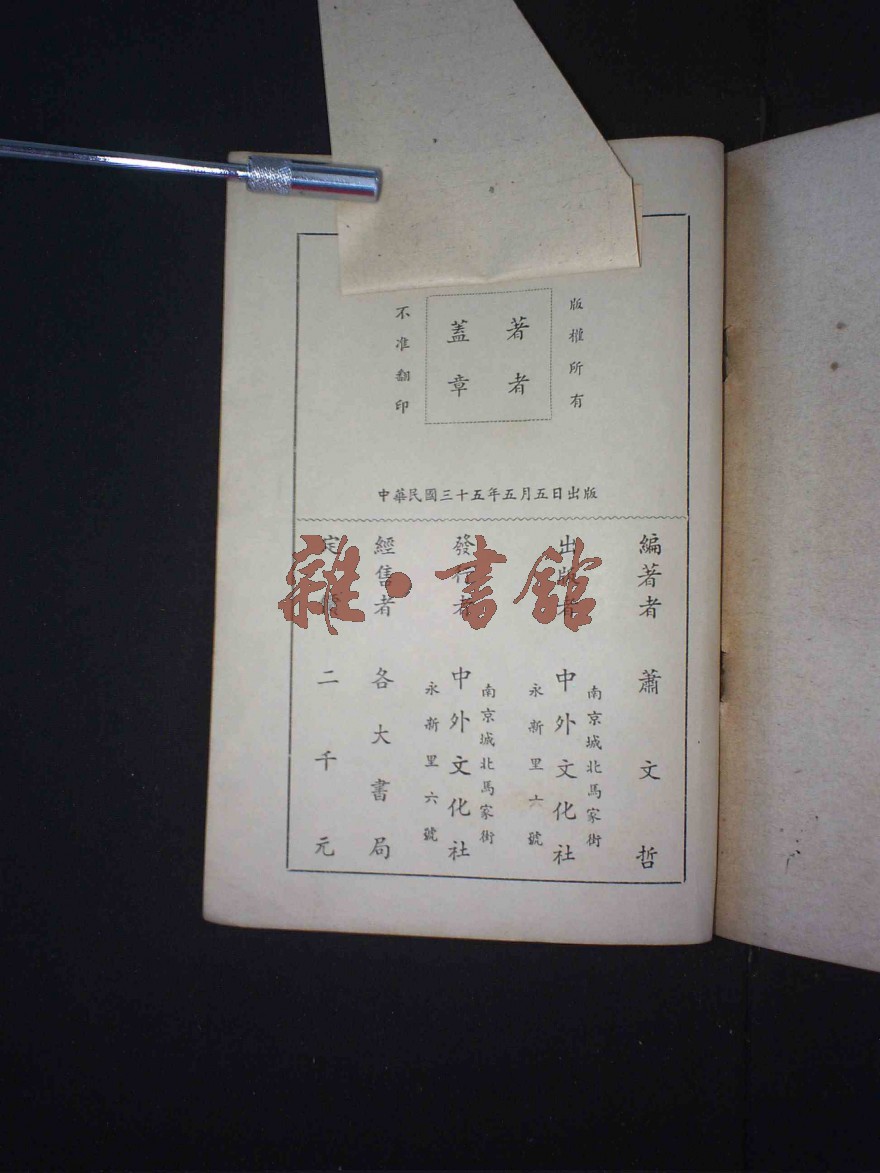 版權所有
著者
蓋章
不准翻印
中華民國三十五年五月五日出版
編著者 蕭文哲
出版者 中外文化社
南京城北馬家街
永新里六號
發行者 中外文化社
南京城北馬家街
永新里六號
經售者 各大書局
定價 二千元
雜·書館